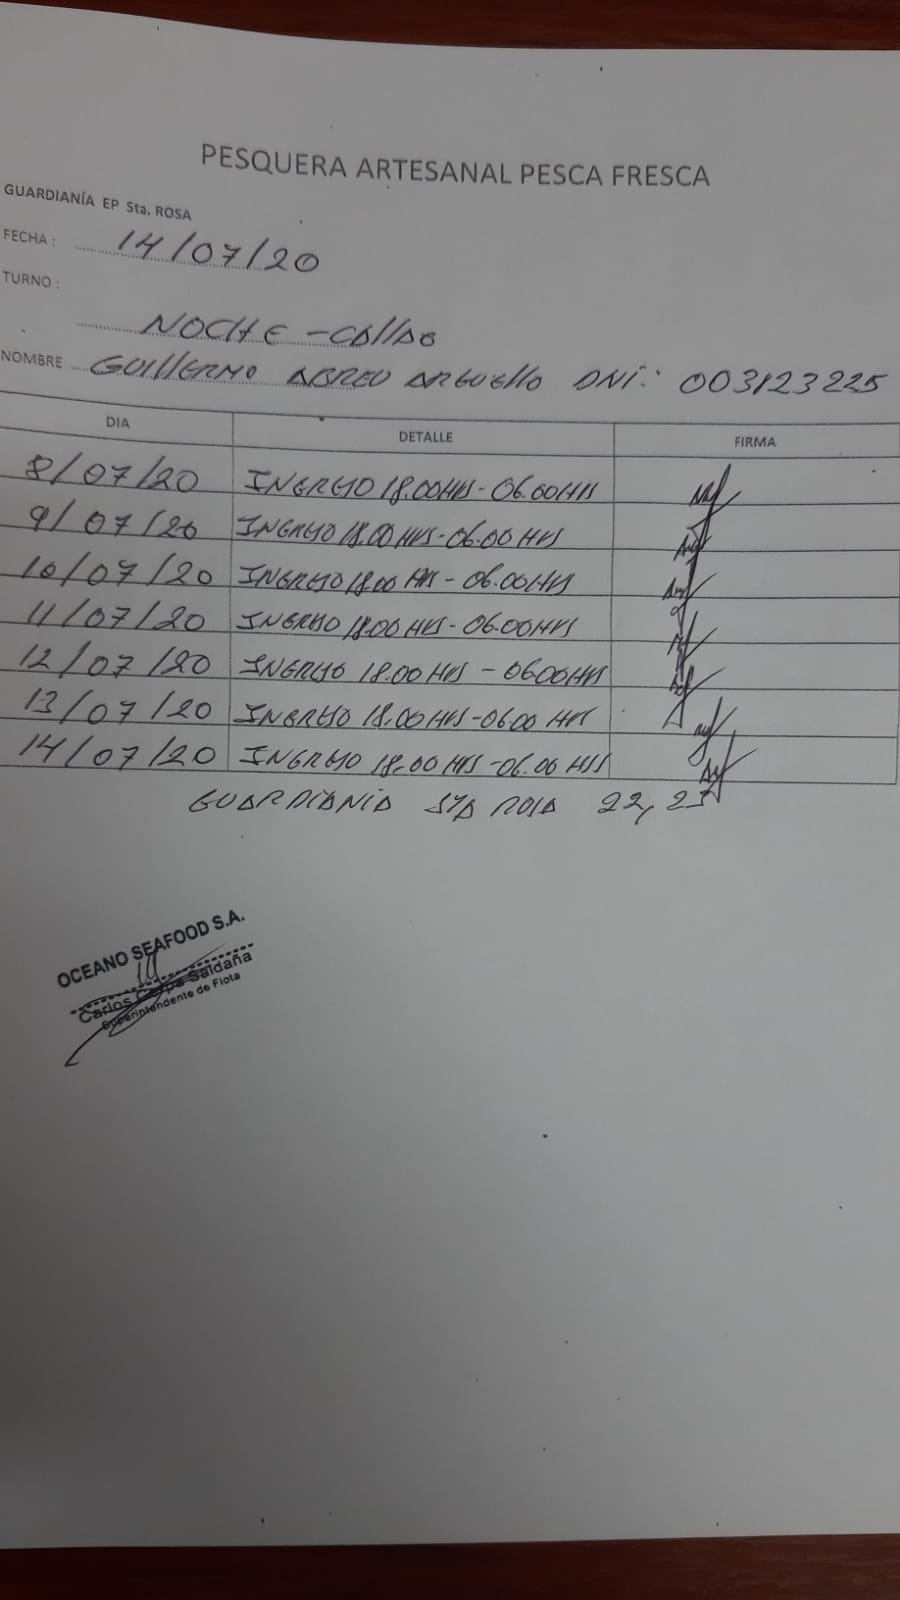 PESQUERA ARTESANAL PESCA FRESCA
GUARDIANÍA EP Sta. ROSA
FECHA : 14/07/20
TURNO :
NOCHE - CALLAO
NOMBRE GUILLERMO ABREU ARGUELLO DNI: 003123225
DIA DETALLE FIRMA
8/07/20 INGRESO 18.00 HRS - 06.00 HRS
9/07/20 INGRESO 18.00 HRS - 06.00 HRS
10/07/20 INGRESO 18.00 HRS - 06.00 HRS
11/07/20 INGRESO 18.00 HRS - 06.00 HRS
12/07/20 INGRESO 18.00 HRS - 06.00 HRS
13/07/20 INGRESO 18.00 HRS - 06.00 HRS
14/07/20 INGRESO 18.00 HRS - 06.00 HRS
GUARDIANIA STA ROSA 22, 23
OCEANO SEAFOOD S.A.
Carlos Saldaña
Superintendente de Flota